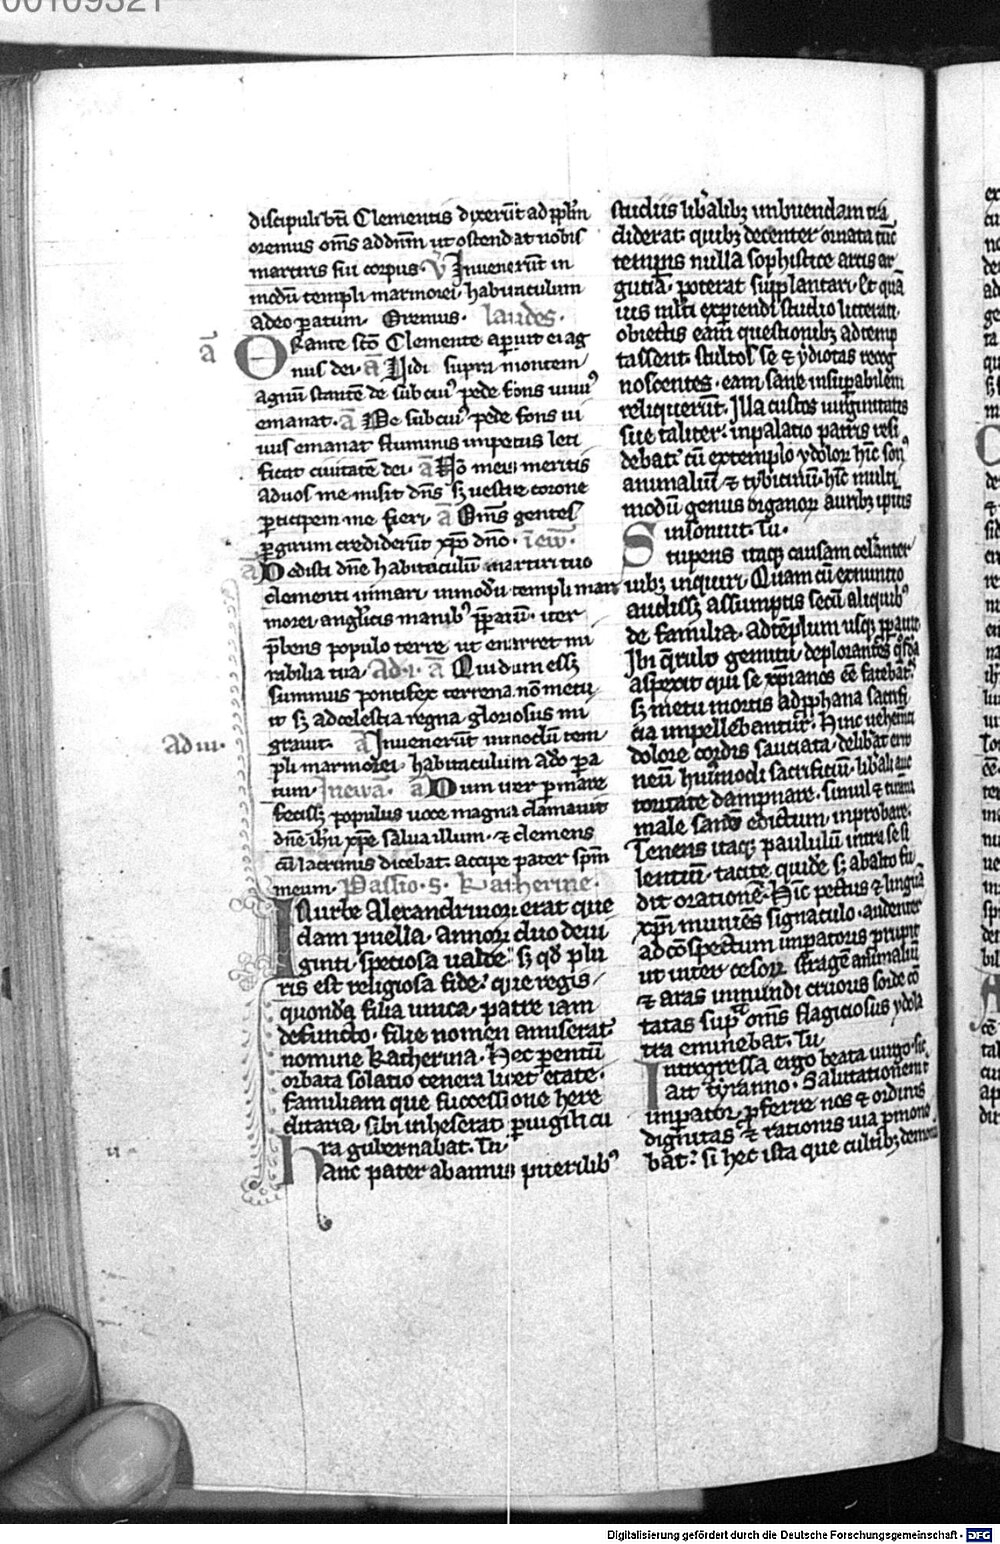 00109321
discipuli bti Clementis dixerūt ad pplm
oremus oms ad dnm ut ostendat nobis
martiris sui corpus. V Invenerūt in
modū templi marmorei habitaculum
adeo paratum. Oremus. laudes.
ā Orante sco Clemente aparuit ei ag
nus dei. ā Vidi supra montem
agnū stantē de sub cuiꝰ pede fons uiuꝰ
emanat. ā De sub cuiꝰ pede fons ui
uus emanat fluminis impetus leti
ficat ciuitatē dei. ā Nō meis meritis
ad uos me misit dns sꝫ uestre corone
ꝑticipem me fieri. ā Oms gentes
ꝑ girum crediderūt xpo dno. in ew.
ā Dedisti dne habitaculū martiri tuo
clementi in mari in modū templi mar
morei anglicis manibꝰ ꝑparatū. iter
p̄bens populo terre ut enarret mi
rabilia tua. Ad .i. ā Quidam essꝫ
summus pontifex terrena nō metu
it sꝫ ad celestia regna gloriosus mi
ad iii.
grauit. ā Invenerūt in modū tem
pli marmorei habitaculum a deo ꝑa
tum. In ewā. ā Dum iter ꝑ mare
fecissꝫ populus uoce magna clamauit
dne ihu xpe salua illum. ⁊ clemens
cū lacrimis dicebat accipe pater spm
meum. Passio. S. Katherine.
In urbe Alexandrinoꝝ erat que
dam puella. annoꝝ duo deui
ginti speciosa ualde. sꝫ qd plu
ris est religiosa fide. que regis
quondā filia unica. patre iam
defuncto. filie nomen amiserat
nomine Katherina. Hec ꝑentū
orbata solatio tenera licet etate.
familiam que successione here
ditaria. sibi inheserat ꝑuigili cu
ra gubernabat. Tu
Hanc pater ab annis puerilibꝰ
studiis libalibꝫ imbuendam tra
diderat. quibꝫ decenter ornata tūc
tempis nulla sophistice artis ar
gutia. poterat supplantari. Et quā
uis mlti exꝑiendi studio litterati.
obiectis eam questionibꝫ ad temp
tassent. stultos se ⁊ ydiotas recog
noscentes. eam sane insuꝑabilem
reliquerūt. Illa custos uirginitatis
sue taliter. in palatio patris resi
debat. cū extemplo ydoloꝝ hīc sonꝰ
animaliū ⁊ tybicinū. hīc multi
modū genus organoꝝ auribꝫ ipius
insonuit. Tu.
Stupens itaqꝫ causam celanter
iubꝫ inquiri. Quam cū ex nuncio
audissꝫ assumptis secū aliquibꝰ
de familia. ad tēplum usqꝫ ꝓꝑauit
Ibi qrulo gemitu deplorantes qsdā
aspexit qui se xpianos eē fatebāt.
sꝫ metu mortis ad ꝓphana sacrifi
cia impellebantur. Hinc uehemti
dolore cordis sauciata. delibat
huiusmodi sacrificiū. libali auc
toritate dampnare. simul ⁊ tiranni
male sanū edictum. inprobare.
Tenens itaqꝫ paululū intra se si
lentiū. tacite quidē sꝫ ab alto fu
dit orationē. Hic pectus ⁊ linguā
xpi muniēs signaculo. audenter
ad cōspectum impatoris prupit
ut inter cesoꝝ stragē animaliū
⁊ aras inmundi cruoris sorde cō
tatas supra oms flagitiosus ydola
tra eminebat. Tu
Intregressa ergo beata uirgo. sic
ait tyranno. Salutationem t
imperator ꝓferre nos ⁊ ordinis
dignitas ⁊ rationis uia ꝑmone
bat. si hec ista que cultibꝫ demonū
Digitalisierung gefördert durch die Deutsche Forschungsgemeinschaft - DFG